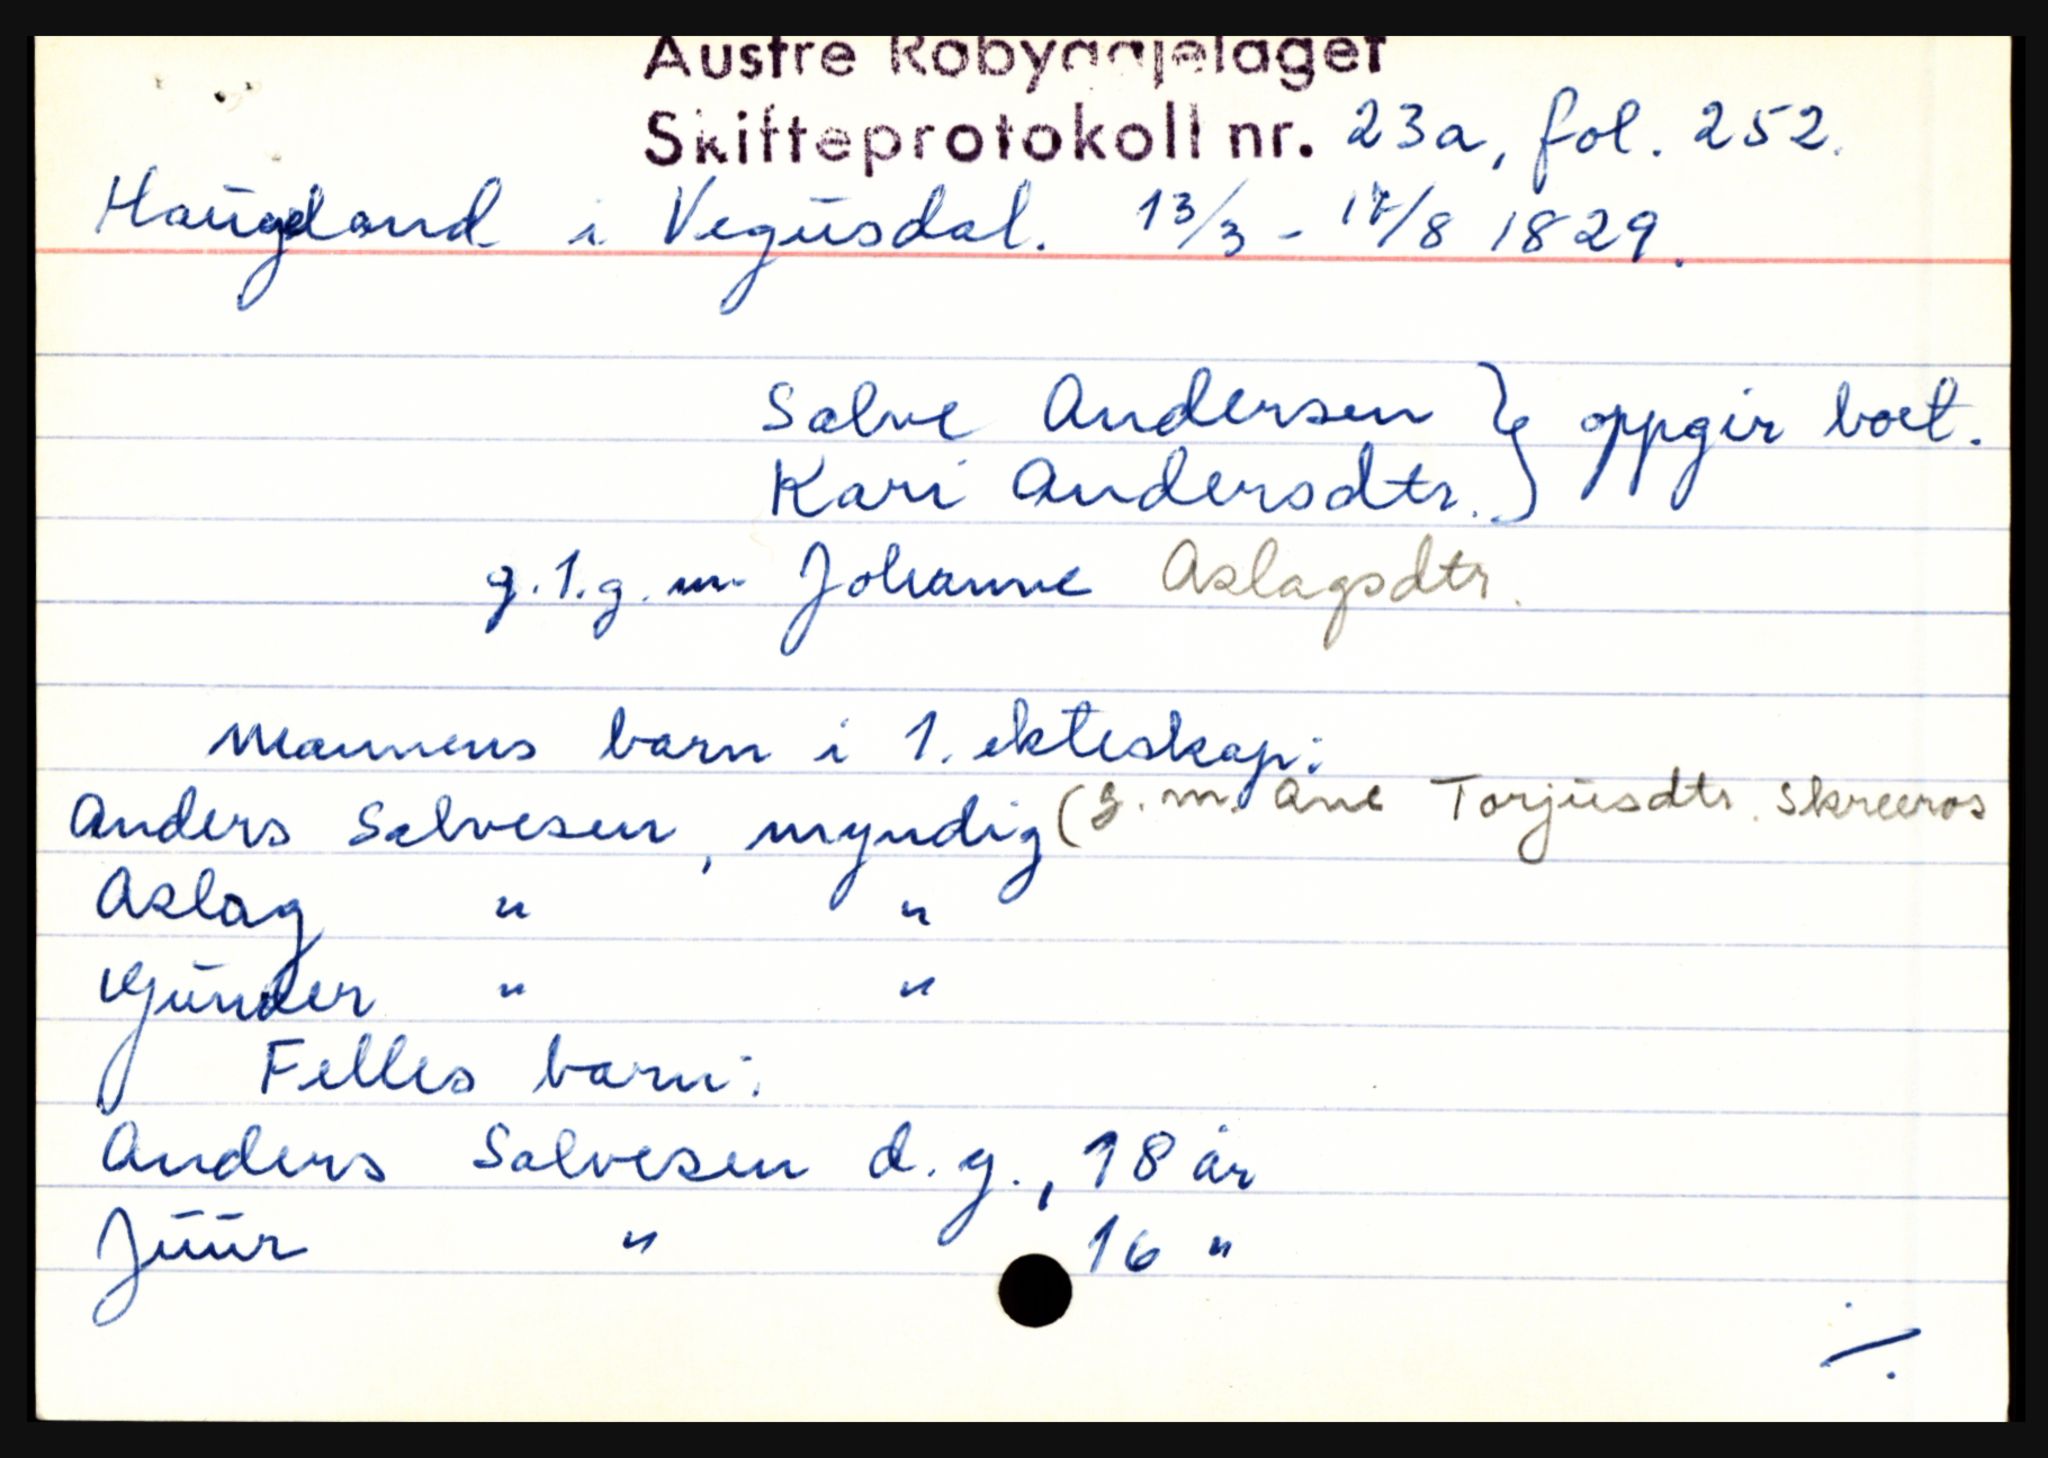 Austre Robyggjelaget
Skifteprotokoll nr. 23a, fol. 252.
Haugland i Vegusdal. 13/3 - 17/8 1829.
Salve Andersen } oppgir boet.
Kari Andersdtr.
g.1.g.m. Johanne Aslagsdtr.
Mannens barn i 1. ekteskap:
Anders Salvesen, myndig (g.m. Ane Torjusdtr. Skreeros
Aslag " "
Gunder " "
Felles barn:
Anders Salvesen d.y., 18 år
Juur " 16 "
./.